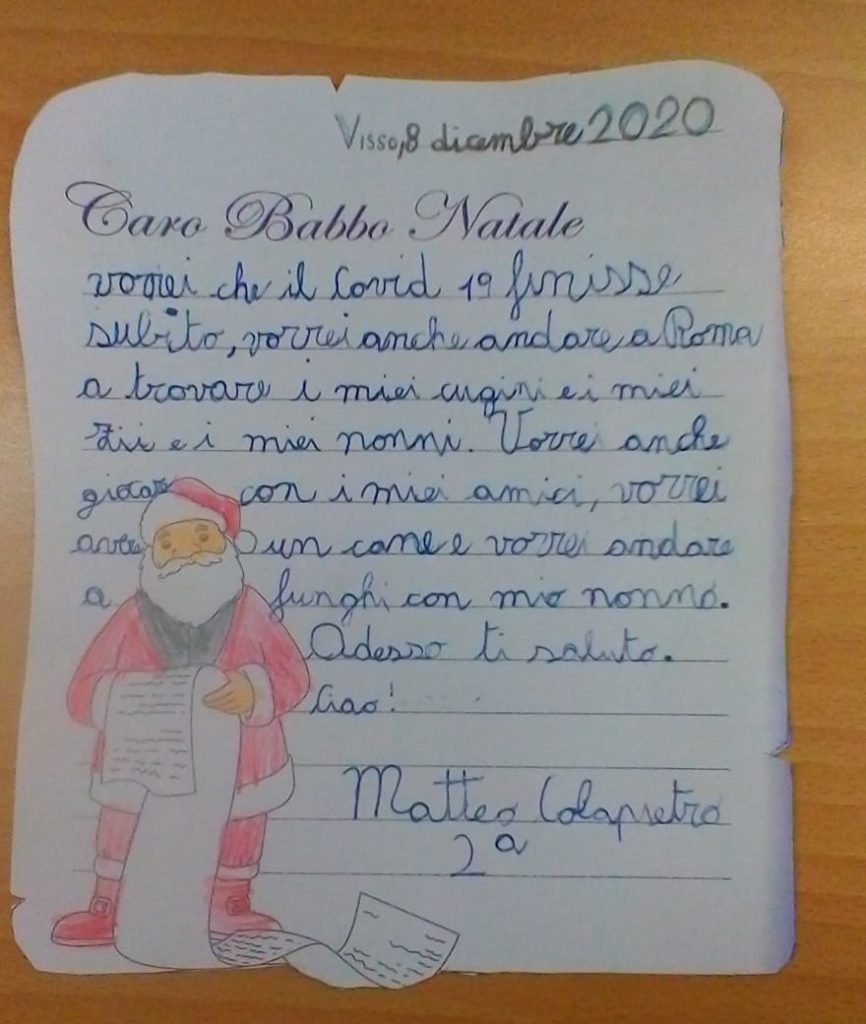 Visso, 8 dicembre 2020
Caro Babbo Natale
vorrei che il Covid 19 finisse
subito, vorrei anche andare a Roma
a trovare i miei cugini e i miei
zii e i miei nonni. Vorrei anche
giocare con i miei amici, vorrei
avere un cane e vorrei andare
a funghi con mio nonno.
Adesso ti saluto.
Ciao!
Matteo Colapietro
2ª